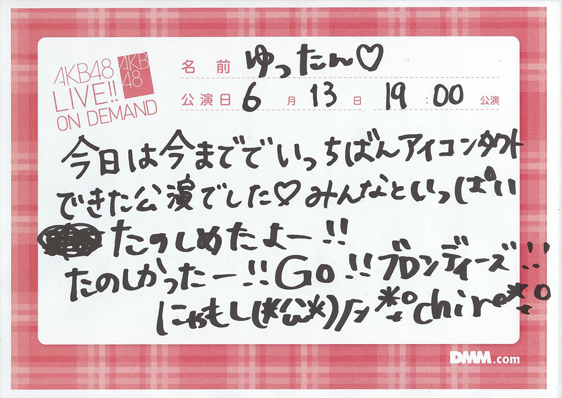 AKB48
LIVE!!
ON DEMAND
AKB
48
名前 ゆったん♡
公演日 6月13日 19:00 公演
今日は今まででいっちばんアイコンタクト
できた公演でした♡みんなといっぱい
たのしめたよー!!
たのしかったー!!Go!!ブロンディーズ!!
にゃもし(*'ω'*)
DMM.com